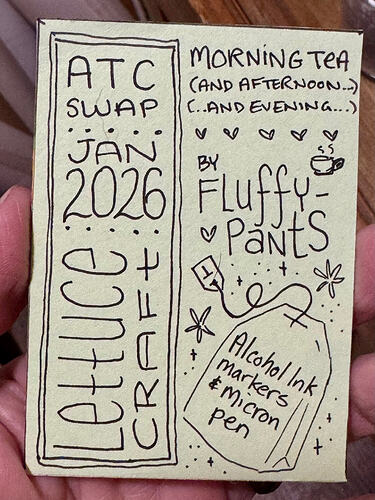 ATC
SWAP
JAN
2026
Lettuce
CRAFt
MORNING TeA
(AND AFTERNOON...)
(...AND EVENING...)
BY
FLuffy-
PantS
T
Alcohol Ink
markers
& Micron
pen